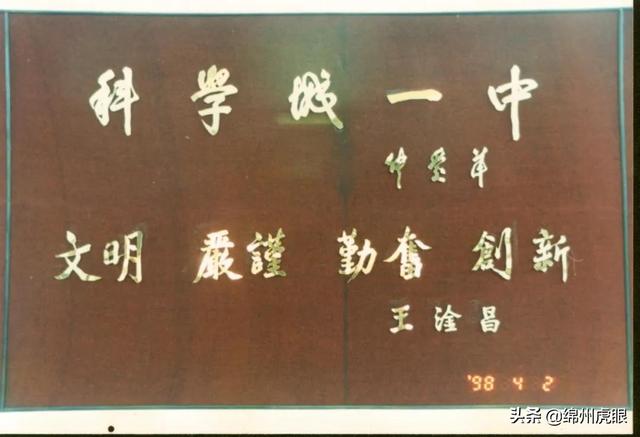 科學城一中
張愛萍
文明 嚴謹 勤奮 創新
王淦昌
'98 4 2
头条 @绵州虎眼